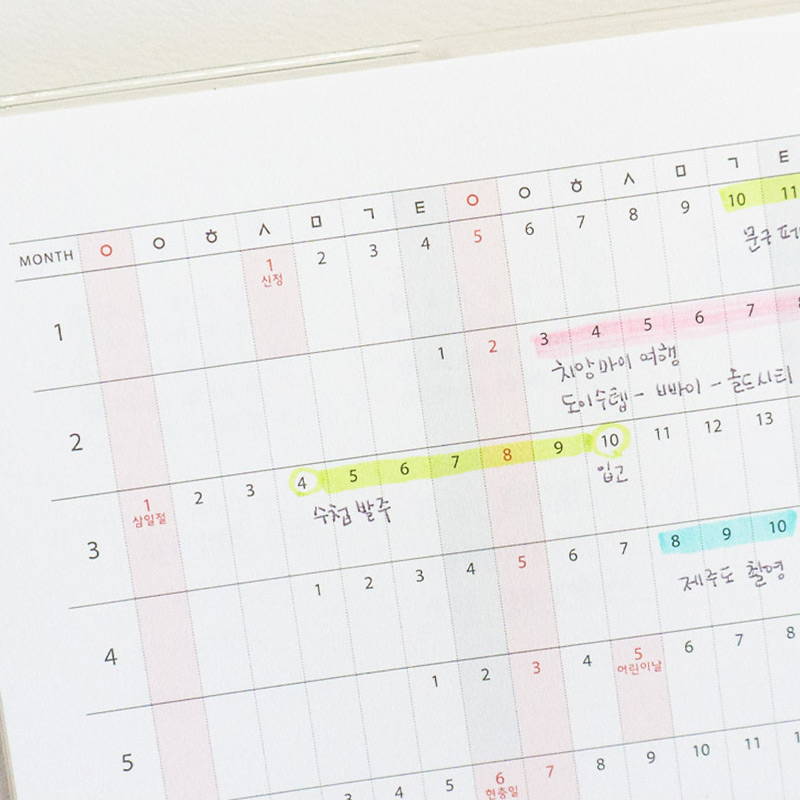 MONTH ㅇ ㅇ ㅎ ㅅ ㅁ ㄱ ㅌ ㅇ ㅇ ㅎ ㅅ ㅁ ㄱ ㅌ
1 1 2 3 4 5 6 7 8 9 10 11
신정
문구
2 1 2 3 4 5 6 7 8
치앙마이 여행
도이수텝 - 빠이 - 올드시티
3 1 2 3 4 5 6 7 8 9 10 11 12 13
삼일절
수첩 발주 입고
4 1 2 3 4 5 6 7 8 9 10
제주도 촬영
5 1 2 3 4 5 6 7 8
어린이날
3 4 5 6 7 8 9 10 11
현충일